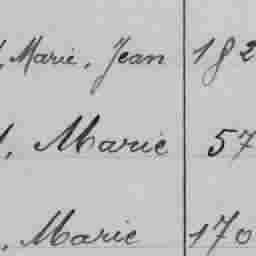 , Marie, Jean 182
, Marie 57
, Marie 170